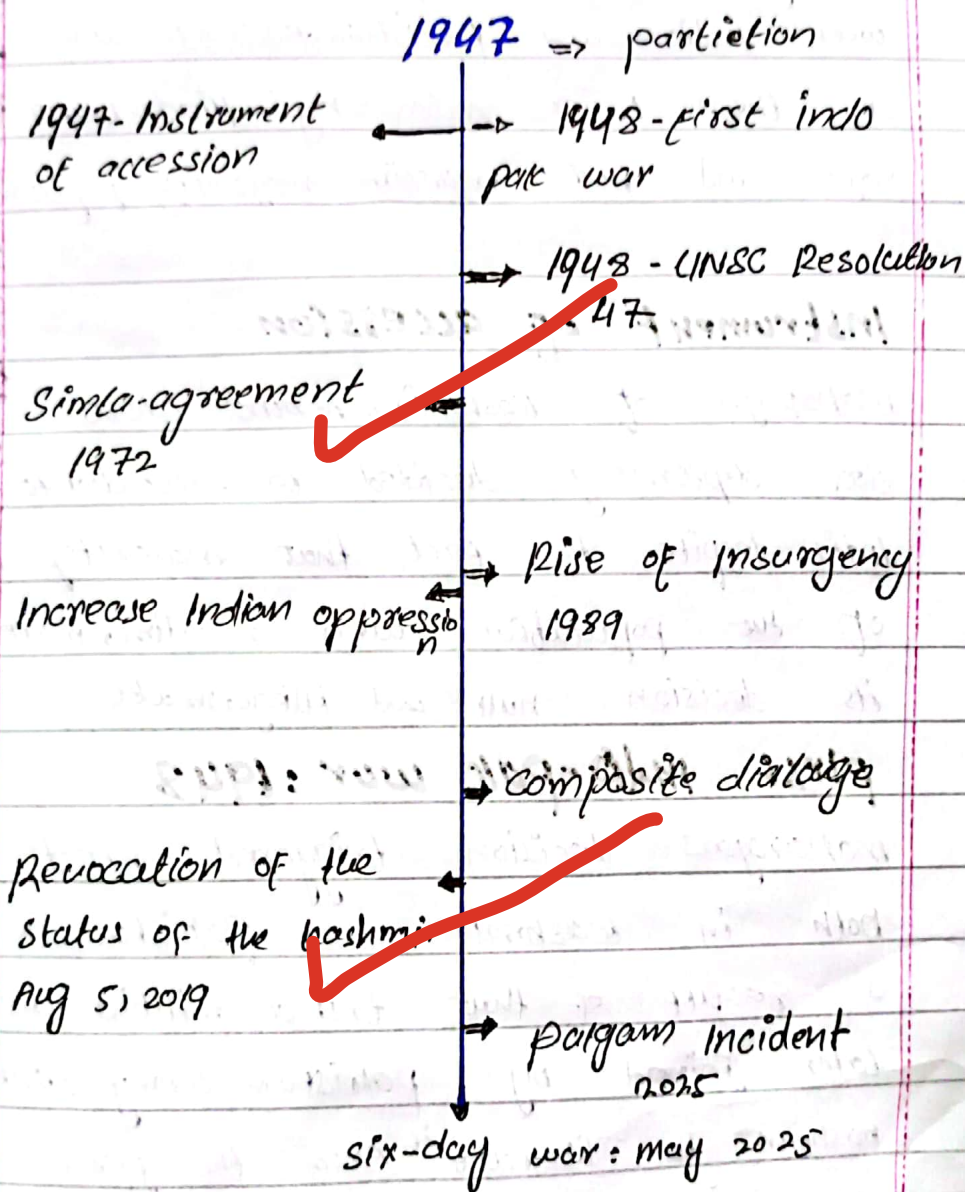 1947 => partietion
1947-Instrument
of accession
1948-first indo
pak war
1948 - UNSC Resolution
47
Simla-agreement
1972
Rise of insurgency
1989
Increase Indian oppressio
n
composite dialouge
Revocation of the
status of the kashmir
Aug 5, 2019
palgam incident
2025
six-day war: may 2025